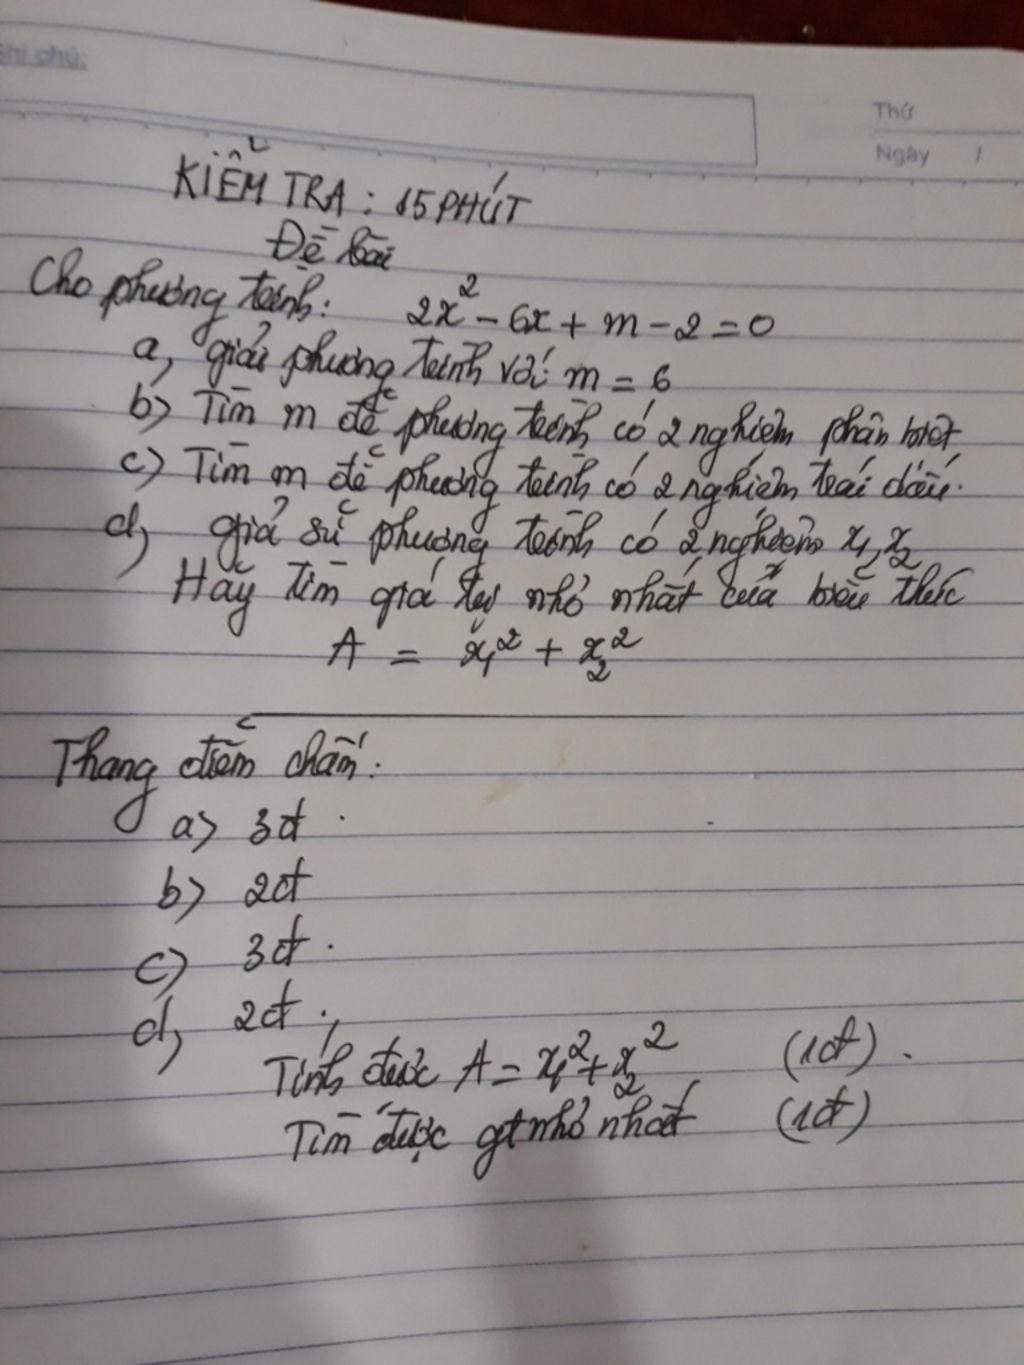 Ghi chú:
Thứ
Ngày /
KIỂM TRA : 15 PHÚT
Đề bài
Cho phương trình: 2x² - 6x + m - 2 = 0
a, giải phương trình với m = 6
b) Tìm m để phương trình có 2 nghiệm phân biệt
c) Tìm m để phương trình có 2 nghiệm trái dấu.
d, giả sử phương trình có 2 nghiệm x₁, x₂
Hãy tìm giá trị nhỏ nhất của biểu thức
A = x₁² + x₂²
Thang điểm chấm:
a) 3đ.
b) 2đ
c) 3đ.
d, 2đ.,
Tính được A = x₁² + x₂² (1đ).
Tìm được gt nhỏ nhất (1đ)